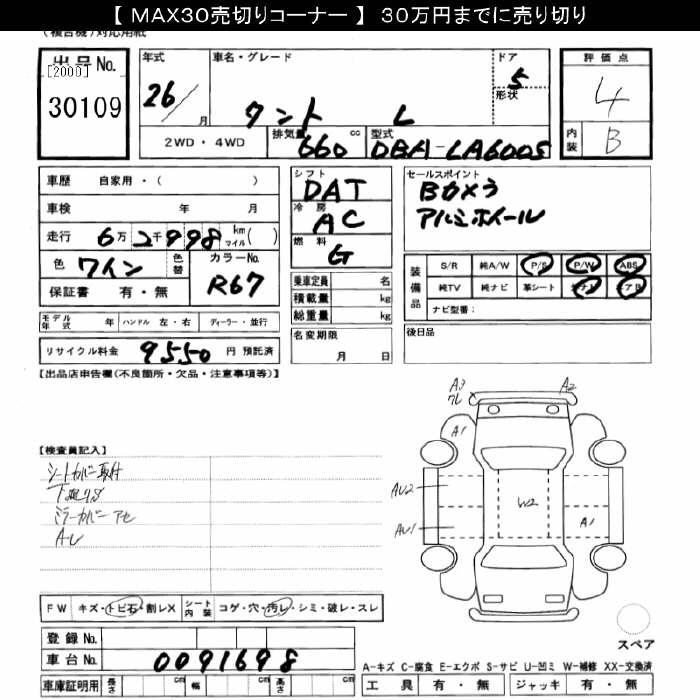 【 MAX30売切りコーナー 】 30万円までに売り切り
(複合機)対応用紙
出品 No.
[2000]
30109
年式
26/ 月
車名・グレード
タント L
ドア
5
形状
評価点
4
内装
B
2WD・4WD
排気量 cc
660
型式
DBA-LA600S
車歴 自家用・( )
車検 年 月
走行 6万 2千998 km マイル( )
色 ワイン
色替
カラーNo.
R67
保証書 有・無
シフト
DAT
冷房
AC
燃料
G
乗車定員 名
積載量 kg
総重量 kg
セールスポイント
Bカメラ
アルミホイール
装備品
S/R 純A/W P/S P/W ABS
純TV 純ナビ 革シート エアB
ナビ型番：
モデル年式 年 ハンドル 左・右 ディーラー・並行
リサイクル料金 9550 円 預託済
名変期限
月 日
後日品
【出品店申告欄(不良箇所・欠品・注意事項等)】
【検査員記入】
シートカバー取付
下廻りサビ
ミラーカバー アセ
A-U
A3
A2
A1
AU2
AU1
W2
A1
FW キズ・トビ石・割レX シート内装 コゲ・穴・汚レ・シミ・破レ・スレ
登録 No.
車台 No. 0091698
車庫証明用 長さ cm 幅 cm 高さ cm
スペア
A-キズ C-腐食 E-エクボ S-サビ U-凹ミ W-補修 XX-交換済
工具 有・無 ジャッキ 有・無